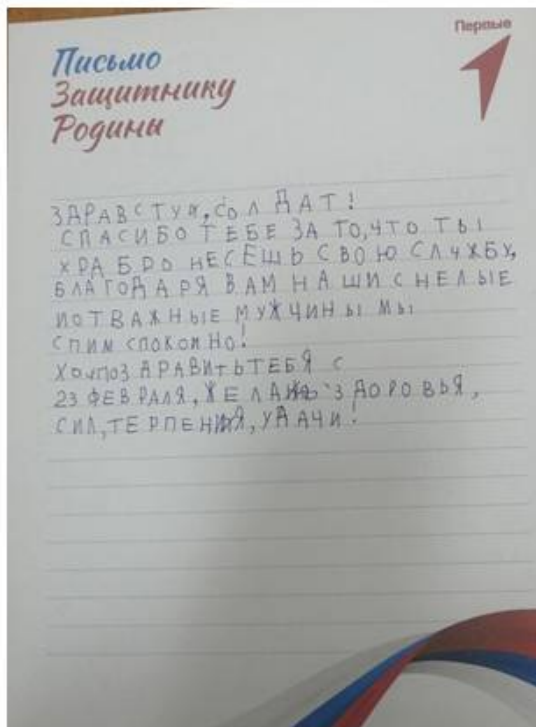 Первые
Письмо
Защитнику
Родины
ЗДРАВСТУЙ, СОЛДАТ!
СПАСИБО ТЕБЕ ЗА ТО, ЧТО ТЫ
ХРАБРО НЕСЁШЬ СВОЮ СЛУЖБУ,
БЛАГОДАРЯ ВАМ НАШИ СНЕЛЫЕ
И ОТВАЖНЫЕ МУЖЧИНЫ МЫ
СПИМ СПОКОЙНО!
ХОЧУ ПОЗДРАВИТЬ ТЕБЯ С
23 ФЕВРАЛЯ, ЗДОРОВЬЯ,
СИЛ, ТЕРПЕНИЯ, УДАЧИ!